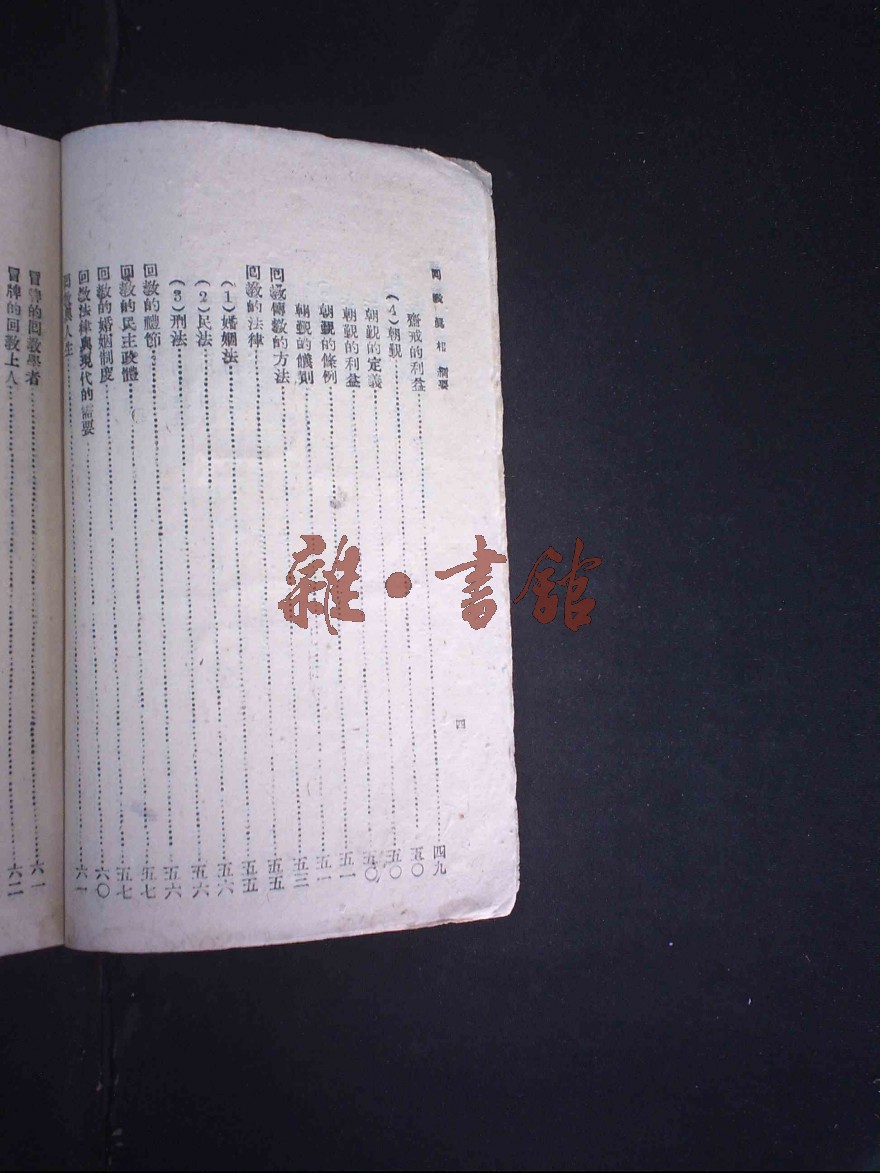 回教眞相綱要
四
齋戒的利益……四九
(4)朝覲……五〇
朝覲的定義……五〇
朝覲的利益……五〇
朝覲的條例……五一
朝覲的儀則……五一
回教傳教的方法……五三
回教的法律……五五
(1)婚姻法……五五
(2)民法……五六
(3)刑法……五六
回教的禮節……五六
回教的民主政體……五七
回教的婚姻制度……五七
回教法律與現代的需要……六〇
回教與人生……六一
冒牌的回教學者……六一
冒牌的回教上人……六二
雜·書館